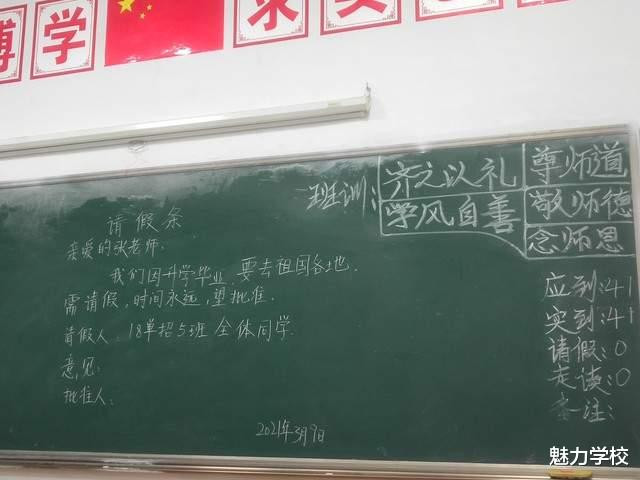 博学
求实
班训：
齐之以礼
学风自善
尊师道
敬师德
念师恩
请假条
亲爱的张老师：
我们因升学毕业，要去祖国各地，
需请假，时间永远，望批准。
请假人：18单招5班 全体同学。
意见：
批准人：
2021年3月9日
应到：41
实到：41
请假：0
走读：0
备注：
魅力学校